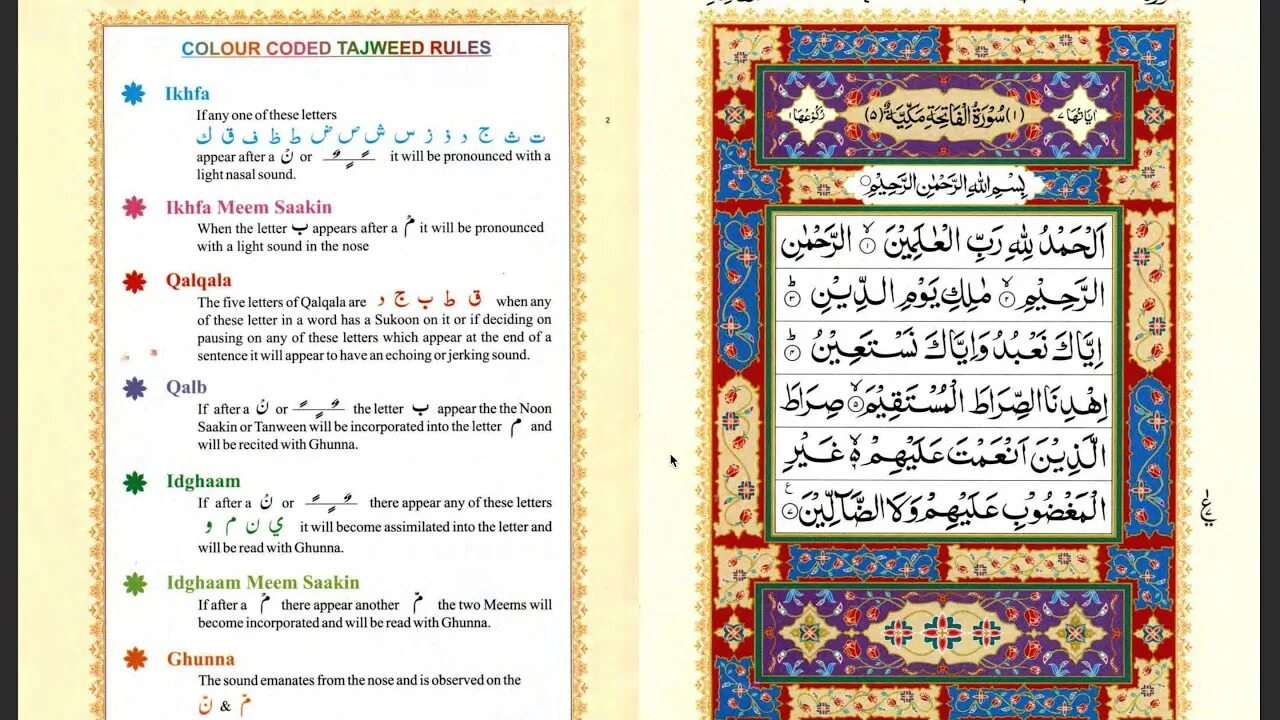 COLOUR CODED TAJWEED RULES
Ikhfa
If any one of these letters
ت ث ج د ذ ز س ش ص ض ط ظ ف ق ك
appear after a نْ or ـًـٍـٌ it will be pronounced with a
light nasal sound.
2
Ikhfa Meem Saakin
When the letter ب appears after a مْ it will be pronounced
with a light sound in the nose
Qalqala
The five letters of Qalqala are ق ط ب ج د when any
of these letter in a word has a Sukoon on it or if deciding on
pausing on any of these letters which appear at the end of a
sentence it will appear to have an echoing or jerking sound.
Qalb
If after a نْ or ـًـٍـٌ the letter ب appear the the Noon
Saakin or Tanween will be incorporated into the letter م and
will be recited with Ghunna.
Idghaam
If after a نْ or ـًـٍـٌ there appear any of these letters
ي ن م و it will become assimilated into the letter and
will be read with Ghunna.
Idghaam Meem Saakin
If after a مْ there appear another مّ the two Meems will
become incorporated and will be read with Ghunna.
Ghunna
The sound emanates from the nose and is observed on the
نّ & مّ
اٰيَاتُهَا ٧ (١) سُوْرَةُ الْفَاتِحَةِ مَكِّيَّةٌ (٥) رُكُوْعُهَا ١
بِسْمِ اللهِ الرَّحْمٰنِ الرَّحِيْمِ
اَلْحَمْدُ لِلّٰهِ رَبِّ الْعٰلَمِيْنَ ۙ﴿١﴾ الرَّحْمٰنِ
الرَّحِيْمِ ۙ﴿٢﴾ مٰلِكِ يَوْمِ الدِّيْنِ ؕ﴿٣﴾
اِيَّاكَ نَعْبُدُ وَاِيَّاكَ نَسْتَعِيْنُ ؕ﴿٤﴾
اِهْدِنَا الصِّرَاطَ الْمُسْتَقِيْمَ ۙ﴿٥﴾ صِرَاطَ
الَّذِيْنَ اَنْعَمْتَ عَلَيْهِمْ ۙ۬ غَيْرِ
الْمَغْضُوْبِ عَلَيْهِمْ وَلَا الضَّآلِّيْنَ ﴿٧﴾